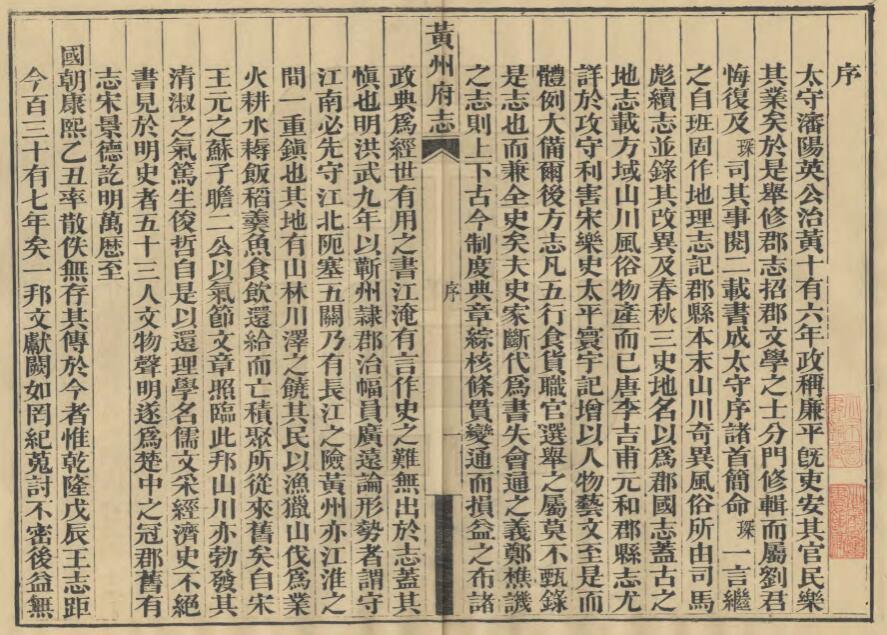 序
太守瀋陽英公治黃十有六年政稱廉平旣吏安其官民樂
其業矣於是舉修郡志招郡文學之士分門修輯而屬劉君
悔復及琛司其事閱二載書成太守序諸首簡命琛一言繼
之自班固作地理志記郡縣本末山川奇異風俗所由司馬
彪續志並錄其改異及春秋三史地名以爲郡國志蓋古之
地志載方域山川風俗物產而已唐李吉甫元和郡縣志尤
詳於攻守利害宋樂史太平寰宇記增以人物藝文至是而
體例大備爾後方志凡五行食貨職官選舉之屬莫不甄錄
是志也而兼全史矣夫史家斷代爲書失會通之義鄭樵譏
之志則上下古今制度典章綜核條貫變通而損益之布諸
黃州府志
序
一
政典爲經世有用之書江淹有言作史之難無出於志蓋其
愼也明洪武九年以蘄州隸郡治幅員廣遠論形勢者謂守
江南必先守江北阨塞五關乃有長江之險黃州亦江淮之
間一重鎮也其地有山林川澤之饒其民以漁獵山伐爲業
火耕水耨飯稻羹魚食飲還給而亡積聚所從來舊矣自宋
王元之蘇子瞻二公以氣節文章照臨此邦山川亦勃發其
清淑之氣篤生俊哲自是以還理學名儒文采經濟史不絕
書見於明史者五十三人文物聲明遂爲楚中之冠郡舊有
志宋景德訖明萬歷至
國朝康熙乙丑率散佚無存其傳於今者惟乾隆戊辰王志距
今百三十有七年矣一邦文獻闕如罔紀蒐討不密後益無